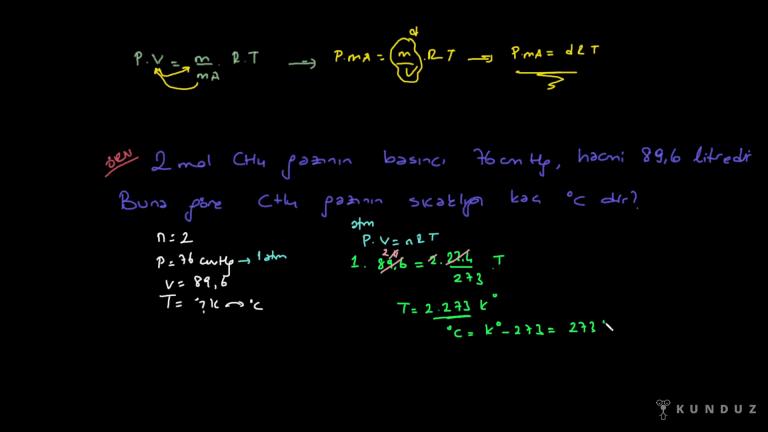 P.V = m/mA . R.T → P.mA = m/V . R T → P mA = d R T
d
örn 2 mol CH4 gazının basıncı 76 cmHg, hacmi 89,6 litredir
Buna göre CH4 gazının sıcaklığı kaç °C dir?
n = 2
P = 76 cmHg → 1 atm
V = 89,6
T = ? K → °C
atm
P.V = n R T
1. 89,6 = 2. 22,4/273 .T
T = 2.273 K°
°C = K° - 273 = 273
KUNDUZ